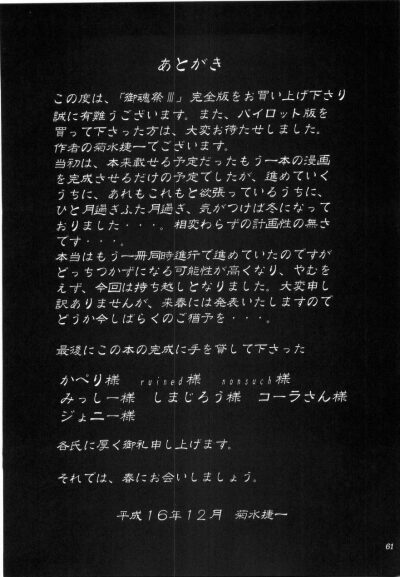 あとがき
この度は、「御魂祭Ⅲ」完全版をお買い上げ下さり
誠に有難うございます。また、パイロット版を
買って下さった方は、大変お待たせしました。
作者の菊水捷一でございます。
当初は、本来載せる予定だったもう一本の漫画
を完成させるだけの予定でしたが、進めていく
うちに、あれもこれもと欲張っているうちに、
ひと月過ぎふた月過ぎ、気がつけば冬になって
おりました・・・。相変わらずの計画性の無さ
です・・・。
本当はもう一冊同時進行で進めていたのですが
どっちつかずになる可能性が高くなり、やむを
えず、今回は持ち越しとなりました。大変申し
訳ありませんが、来春には発表いたしますので
どうか今しばらくのご猶予を・・・。
最後にこの本の完成に手を貸して下さった
かぺり様 ruined様 nonsuch様
みっしー様 しまじろう様 コーラさん様
ジェニー様
各氏に厚く御礼申し上げます。
それでは、春にお会いしましょう。
平成16年12月 菊水捷一
61